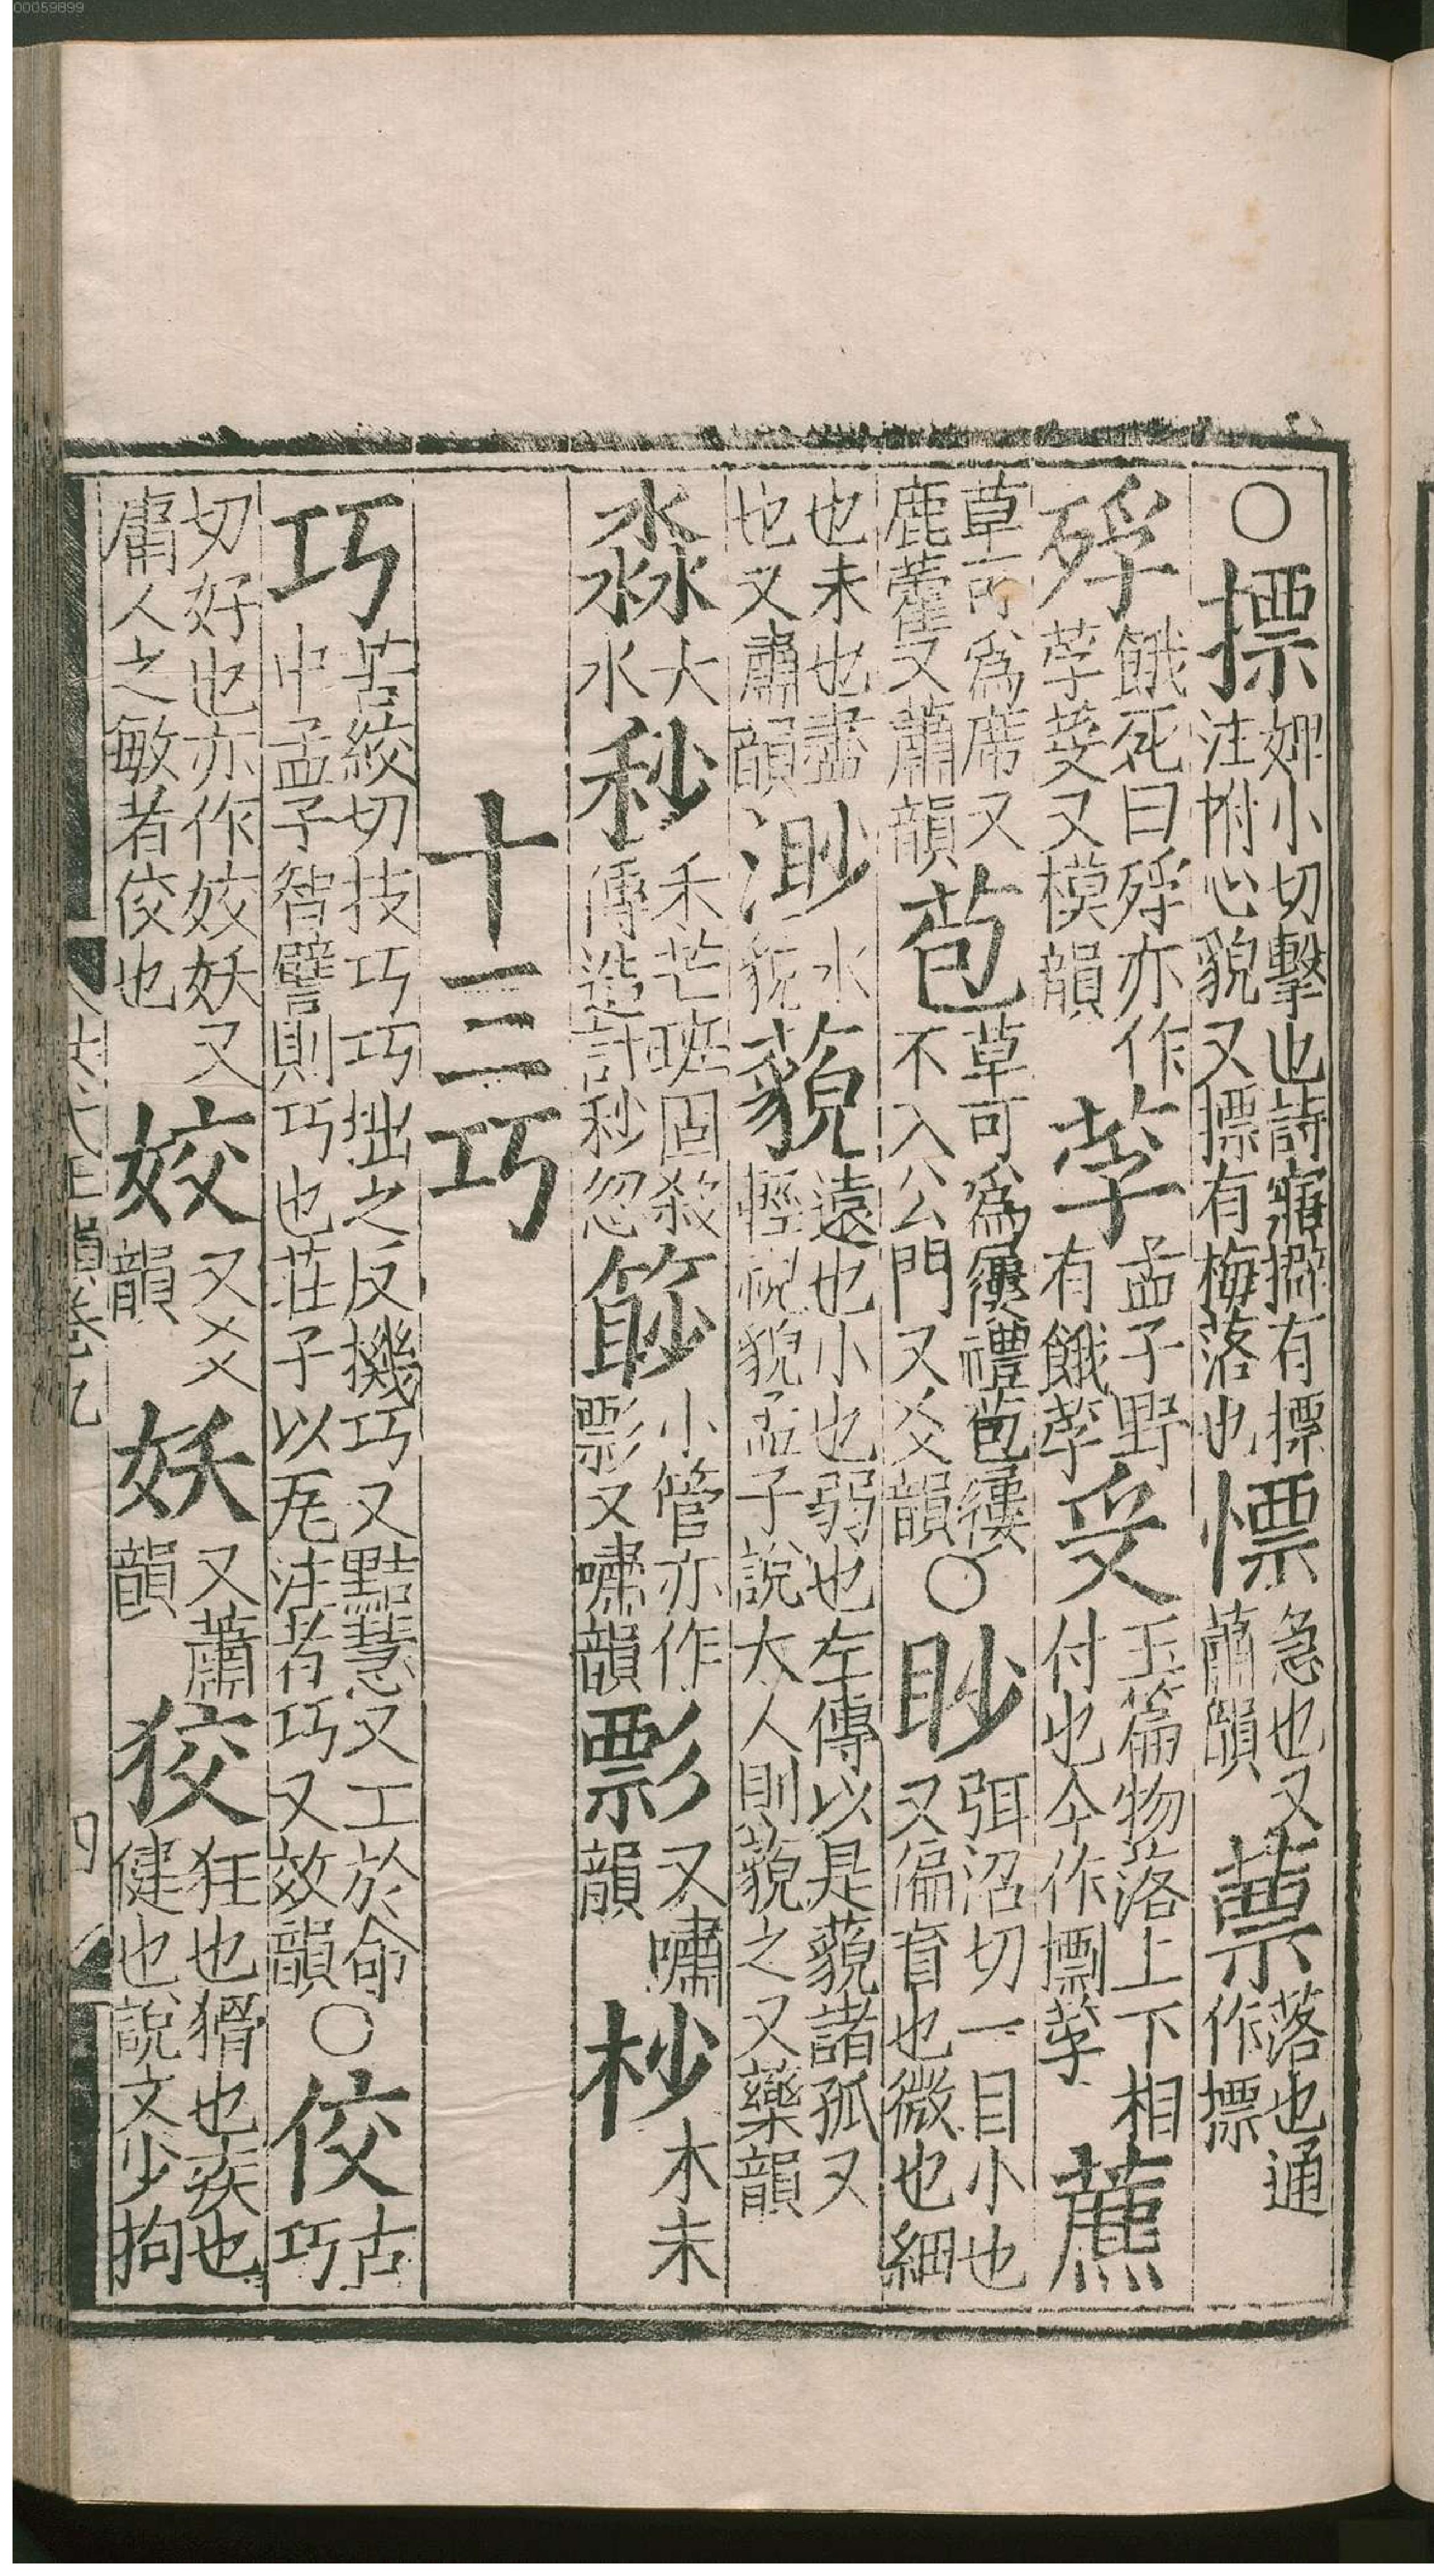 00059899
○摽婢小切擊也詩寤擗有摽注拊心貌又摽有梅落也慓急也又蕭韻蔈落也通作摽
殍餓死曰殍亦作莩荽又模韻莩孟子野有餓莩𠬪玉篇物落上下相付也今作摽莩藨
草可爲席又鹿藿又蕭韻苞草可爲屨禮苞屨不入公門又爻韻○眇弭沼切一目小也又偏盲也微也細
也未也盡也又肅韻渺水貌藐遠也小也弱也左傳以是藐諸孤又輕視貌孟子說大人則藐之又藥韻
淼大水秒禾芒班固敘傳造計秒忽䈅小管亦作彯又嘯韻彯又嘯韻杪木末
十三巧
巧苦絞切技巧巧拙之反機巧又黠慧又工於命中孟子智譬則巧也莊子以瓦注者巧又效韻○佼古巧
切好也亦作姣妖又庸人之敏者佼也姣又爻韻妖又蕭韻狡狂也猾也疾也健也說文少狗